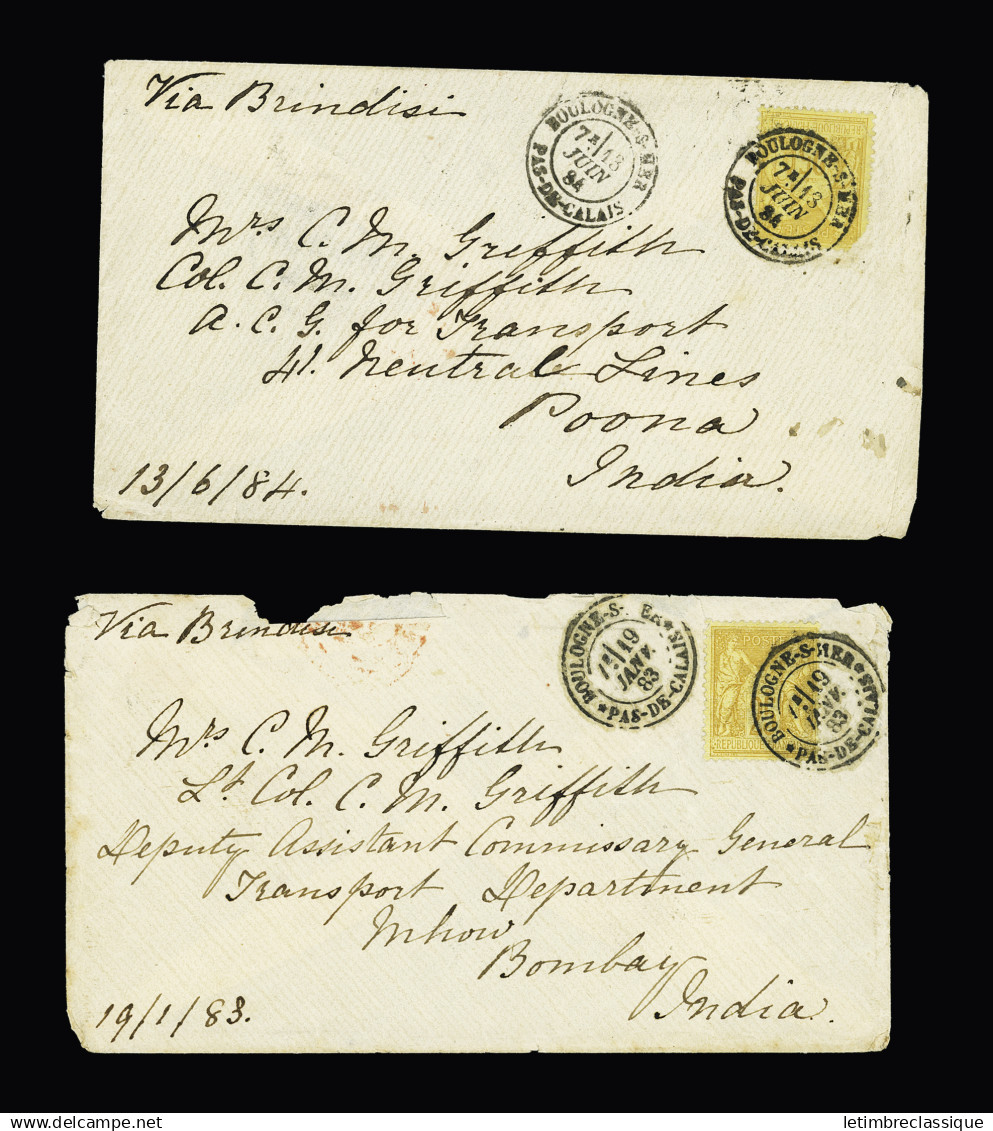 Via Brindisi
BOULOGNE-S-MER
7E/13
JUIN
84
PAS-DE-CALAIS
BOULOGNE-S-MER
7E/13
JUIN
84
PAS-DE-CALAIS
Mrs C. M. Griffith
Col. C. M. Griffith
A. C. G. for Transport
41. Neutral Lines
Poona
India.
13/6/84.
Via Brindisi
BOULOGNE-S- ER
19
JANV.
83
PAS-DE-CALAIS
POSTES
REPUBLIQUE
BOULOGNE-S-MER
19
JANV.
83
PAS-DE-CALAIS
Mrs C. M. Griffith
Lt Col. C. M. Griffith
Deputy Assistant Commissary General
Transport Department
Mhow
Bombay
India.
19/1/83.
letimbreclassique